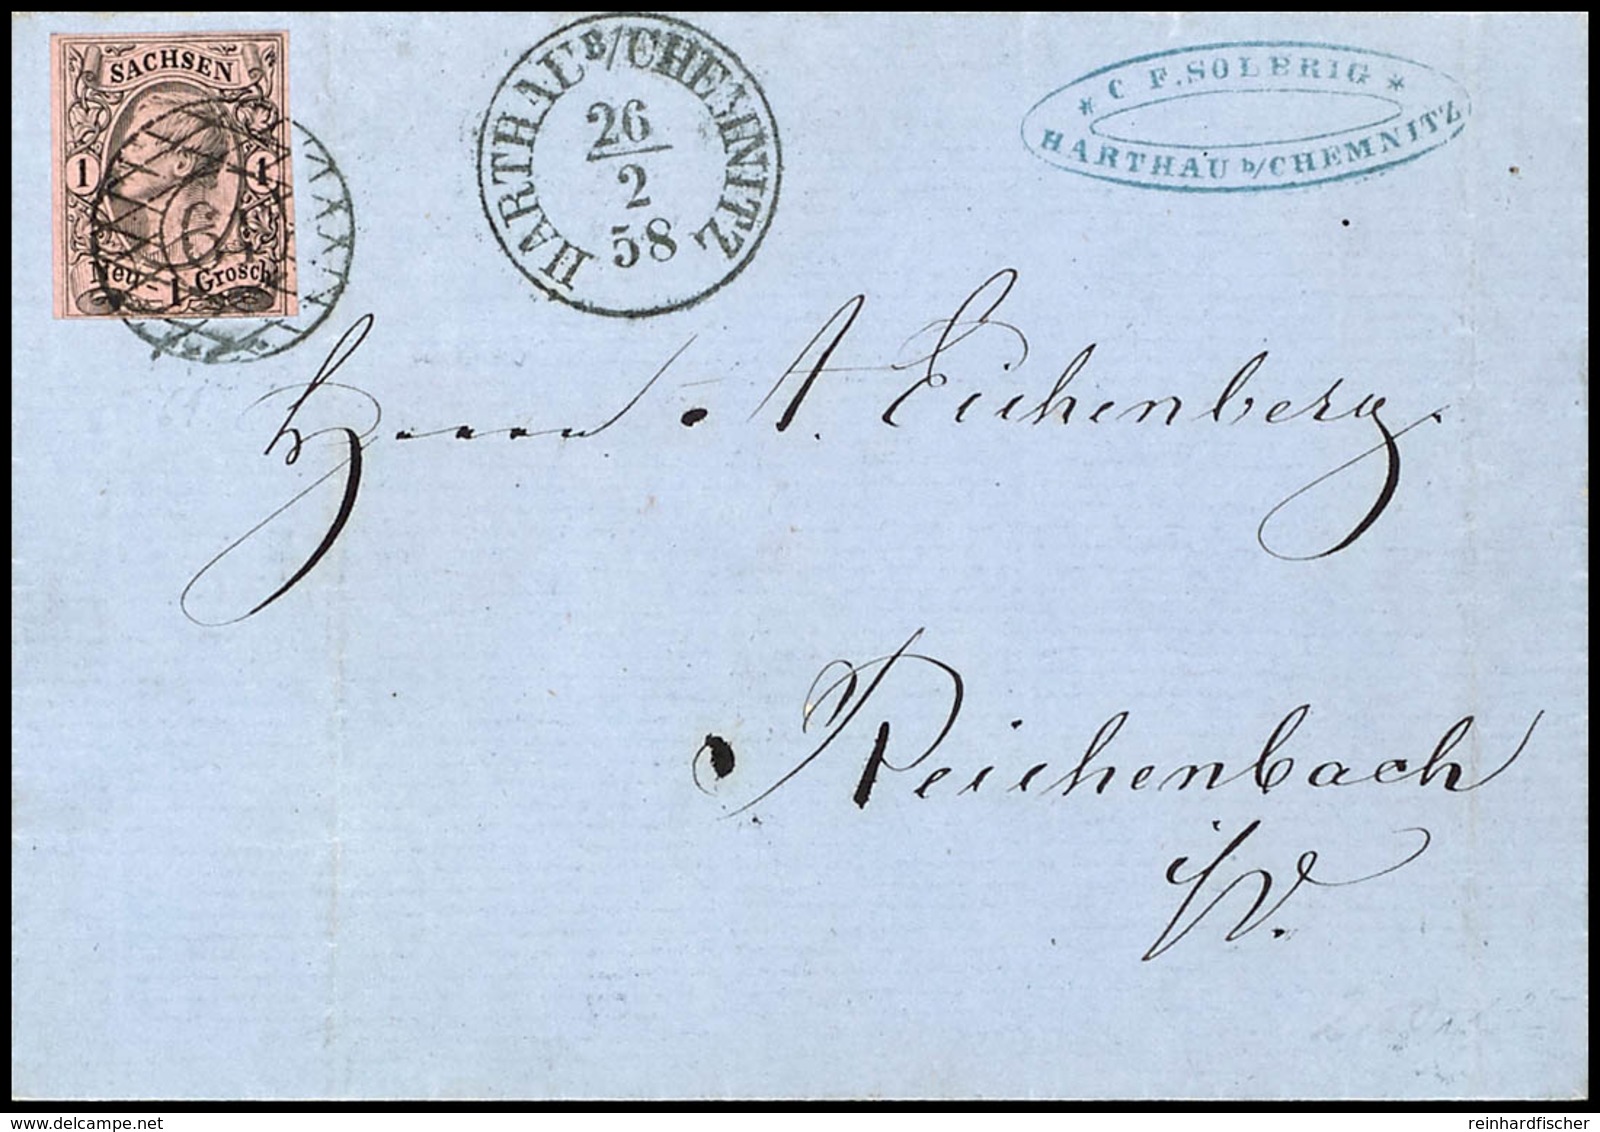 SACHSEN
1 1
Neu- 1 Grosch
HARTHAU B/CHEMNITZ
26
2
58
* C. F. SOLBRIG *
HARTHAU b/CHEMNITZ
Herrn A. Eichenberg.
Reichenbach
i/V.
delcampe.net
reinhardfischer